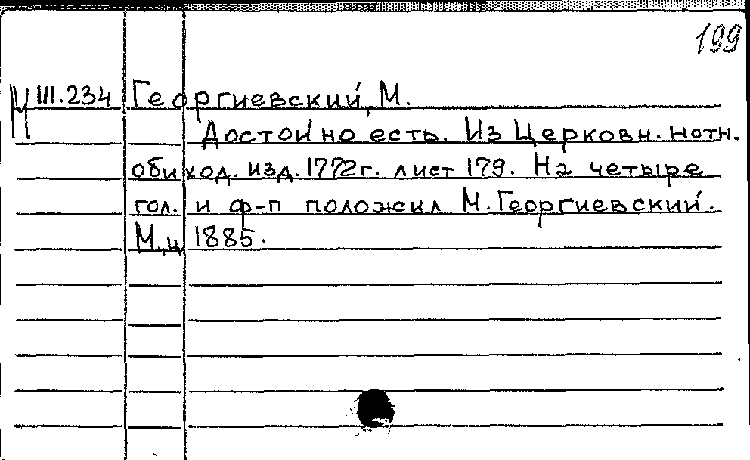 199
М III.234 Георгиевский, М.
Достойно есть. Из Церковн. нотн.
обиход. изд. 1772 г. лист 179. На четыре
гол. и ф-п положил М. Георгиевский.
М., ц. 1885.